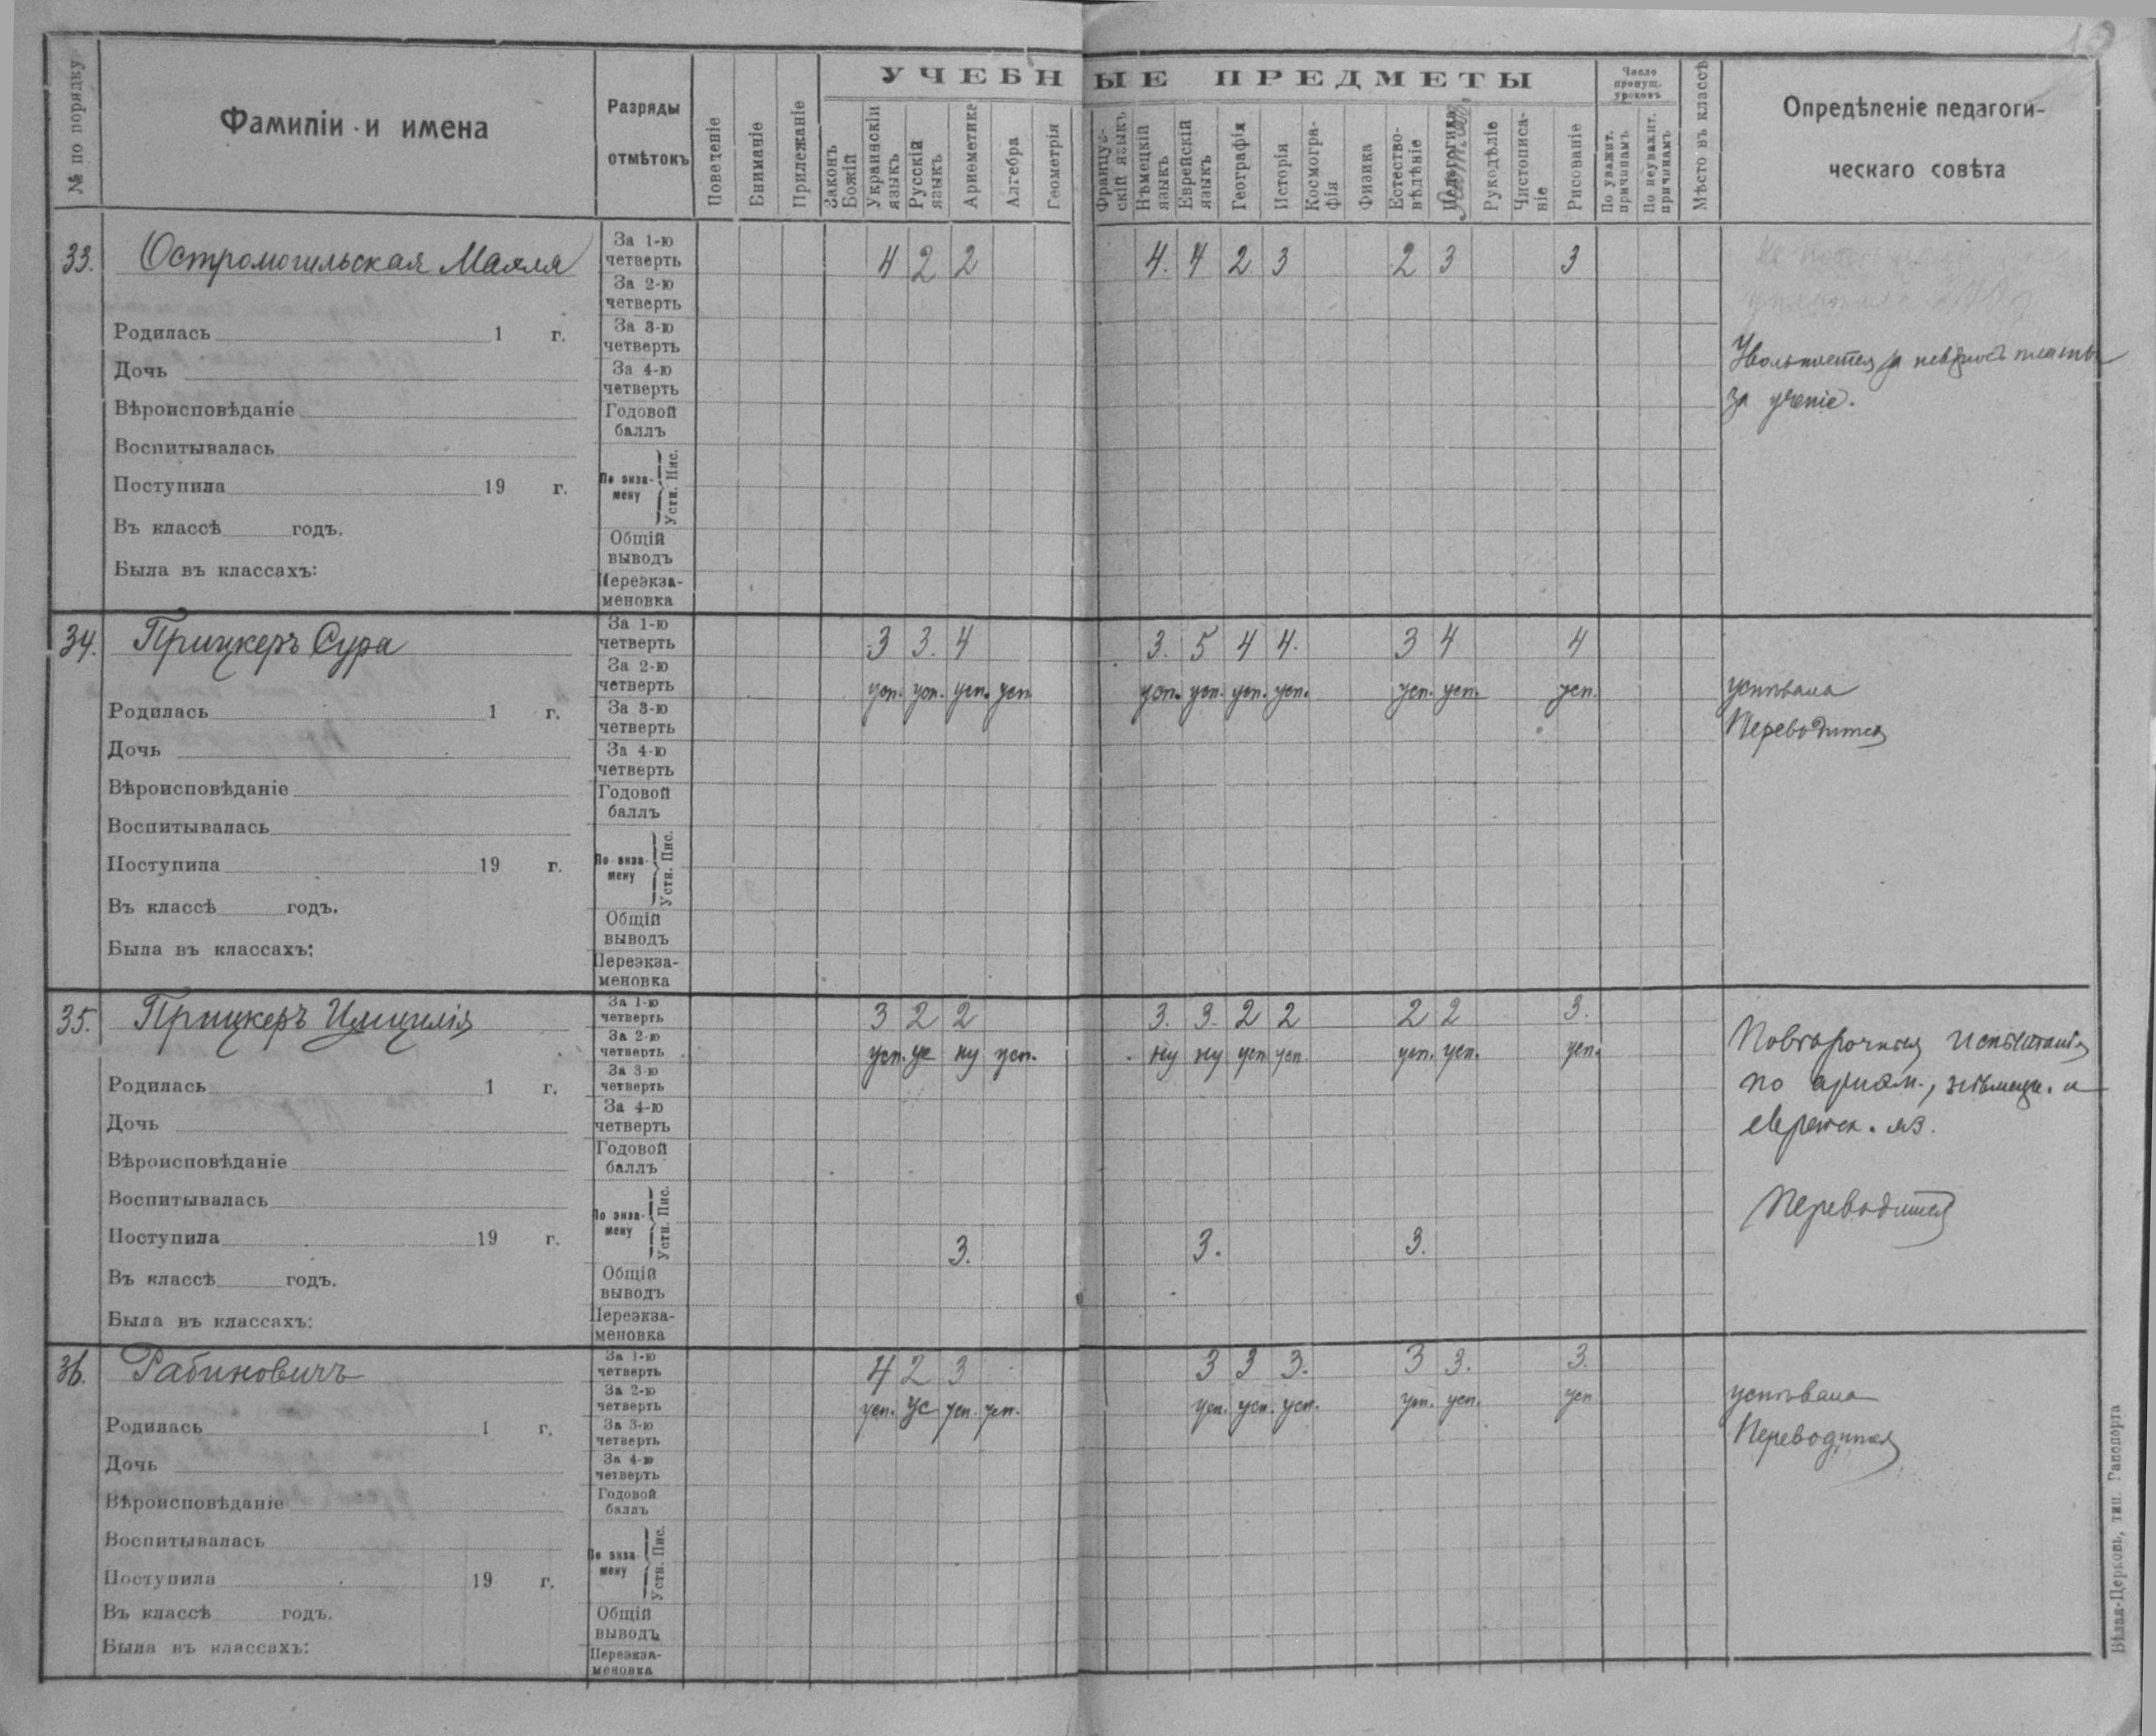 10
№ по порядку
Фамиліи и имена
Разряды
отмѣтокъ
Поведеніе
Вниманіе
Прилежаніе
УЧЕБНЫЕ ПРЕДМЕТЫ
Законъ Божій
Украинскій языкъ
Русскій языкъ
Ариѳметика
Алгебра
Геометрія
Француз-скій языкъ
Нѣмецкій языкъ
Еврейскій языкъ
Географія
Исторія
Космогра-фія
Физика
Естество-вѣдѣніе
Педагогика
Рукодѣліе
Чистописа-ніе
Рисованіе
Число пропущ. уроковъ
По уважит. причинамъ
По неуважит. причинамъ
Мѣсто въ классѣ
Опредѣленіе педагоги-
ческаго совѣта
33. Остромогильская Маяля
За 1-ю четверть 4 2 2 4. 4 2 3 2 3 3
За 2-ю четверть
Родилась 1 г.
За 3-ю четверть
Увольняется за невзносъ платы
Дочь
За 4-ю четверть
за ученіе.
Вѣроисповѣданіе
Годовой баллъ
Воспитывалась
По экза-мену Устн. Пис.
Поступила 19 г.
Въ классѣ годъ.
Общій выводъ
Была въ классахъ:
Переэкза-меновка
34. Прицкеръ Сура
За 1-ю четверть 3 3. 4 3. 5 4 4. 3 4 4
За 2-ю четверть усп. усп. усп. усп. усп. усп. усп. усп. усп. усп. усп.
успѣвала
Родилась 1 г.
За 3-ю четверть
Переводится
Дочь
За 4-ю четверть
Вѣроисповѣданіе
Годовой баллъ
Воспитывалась
По экза-мену Устн. Пис.
Поступила 19 г.
Въ классѣ годъ.
Общій выводъ
Была въ классахъ:
Переэкза-меновка
35. Прицкеръ Цицилія
За 1-ю четверть 3 2 2 3. 3. 2 2 2 2 3.
За 2-ю четверть усп. ус ну усп. ну ну усп усп. усп. усп. усп.
Повторочныя испытанія
Родилась 1 г.
За 3-ю четверть
по ариѳм., нѣмецк. и
Дочь
За 4-ю четверть
еврейск. яз.
Вѣроисповѣданіе
Годовой баллъ
Воспитывалась
Переводится
По экза-мену Устн. Пис. 3. 3. 3.
Поступила 19 г.
Въ классѣ годъ.
Общій выводъ
Была въ классахъ:
Переэкза-меновка
36. Рабиновичъ
За 1-ю четверть 4 2 3 3 3 3. 3 3. 3.
За 2-ю четверть усп. ус усп. усп. усп. усп. усп. усп. усп. усп
успѣвала
Родилась 1 г.
За 3-ю четверть
Переводится
Дочь
За 4-ю четверть
Вѣроисповѣданіе
Годовой баллъ
Воспитывалась
По экза-мену Устн. Пис.
Поступила 19 г.
Въ классѣ годъ.
Общій выводъ
Была въ классахъ:
Переэкза-меновка
Бѣлая-Церковь, тип. Рапопорта